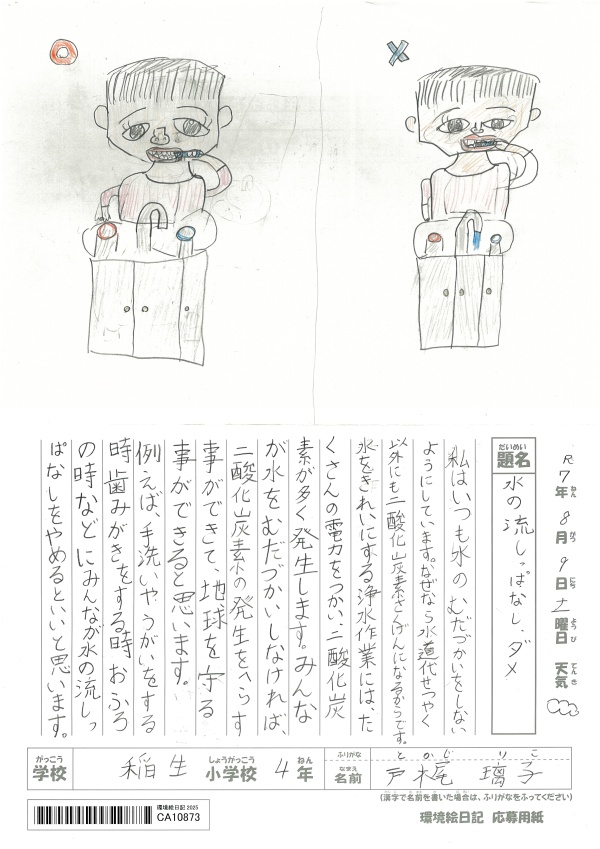 R7年8月9日土曜日 天気
ねん がつ にち ようび てんき
だいめい
題名 水の流しっぱなし、ダメ
私はいつも水のむだづかいをしない
ようにしています。なぜなら水道代せつやく
以外にも二酸化炭素さくげんになるからです。
水をきれいにする浄水作業には、た
くさんの電力をつかい、二酸化炭
素が多く発生します。みんな
が水をむだづかいしなければ、
二酸化炭素の発生をへらす
事ができて、地球を守る
事ができると思います。
例えば、手洗いやうがいをする
時歯みがきをする時おふろ
の時などにみんなが水の流しっ
ぱなしをやめるといいと思います。
がっこう しょうがっこう ねん
学校 稲生 小学校 4年
ふりがな とかじ りこ
なまえ
名前 戸梶 璃子
(漢字で名前を書いた場合は、ふりがなをふってください)
環境絵日記 2025
CA10873
環境絵日記 応募用紙